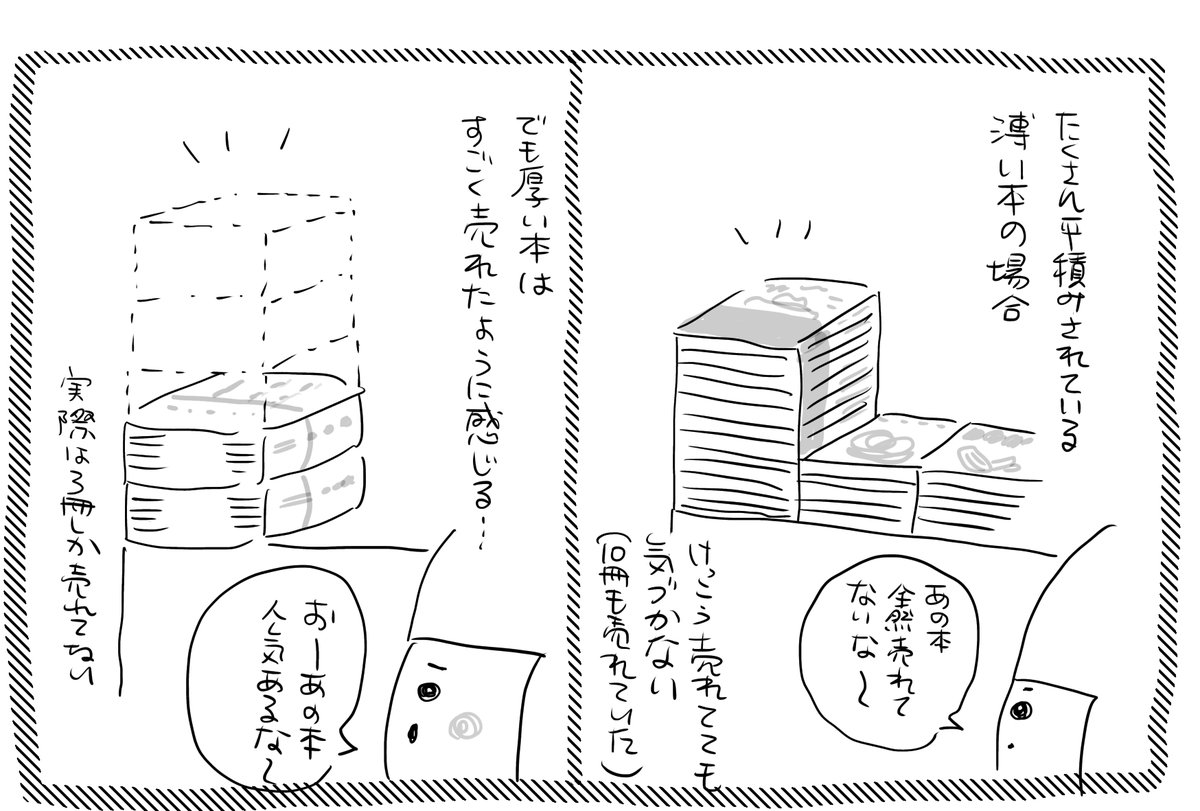 たくさん平積みされている
薄い本の場合
あの本
全然売れて
ないな〜
けっこう売れてても
気づかない
(10冊も売れていた)
でも厚い本は
すごく売れたように感じる…
おーあの本
人気あるな〜
実際は3冊しか売れてない